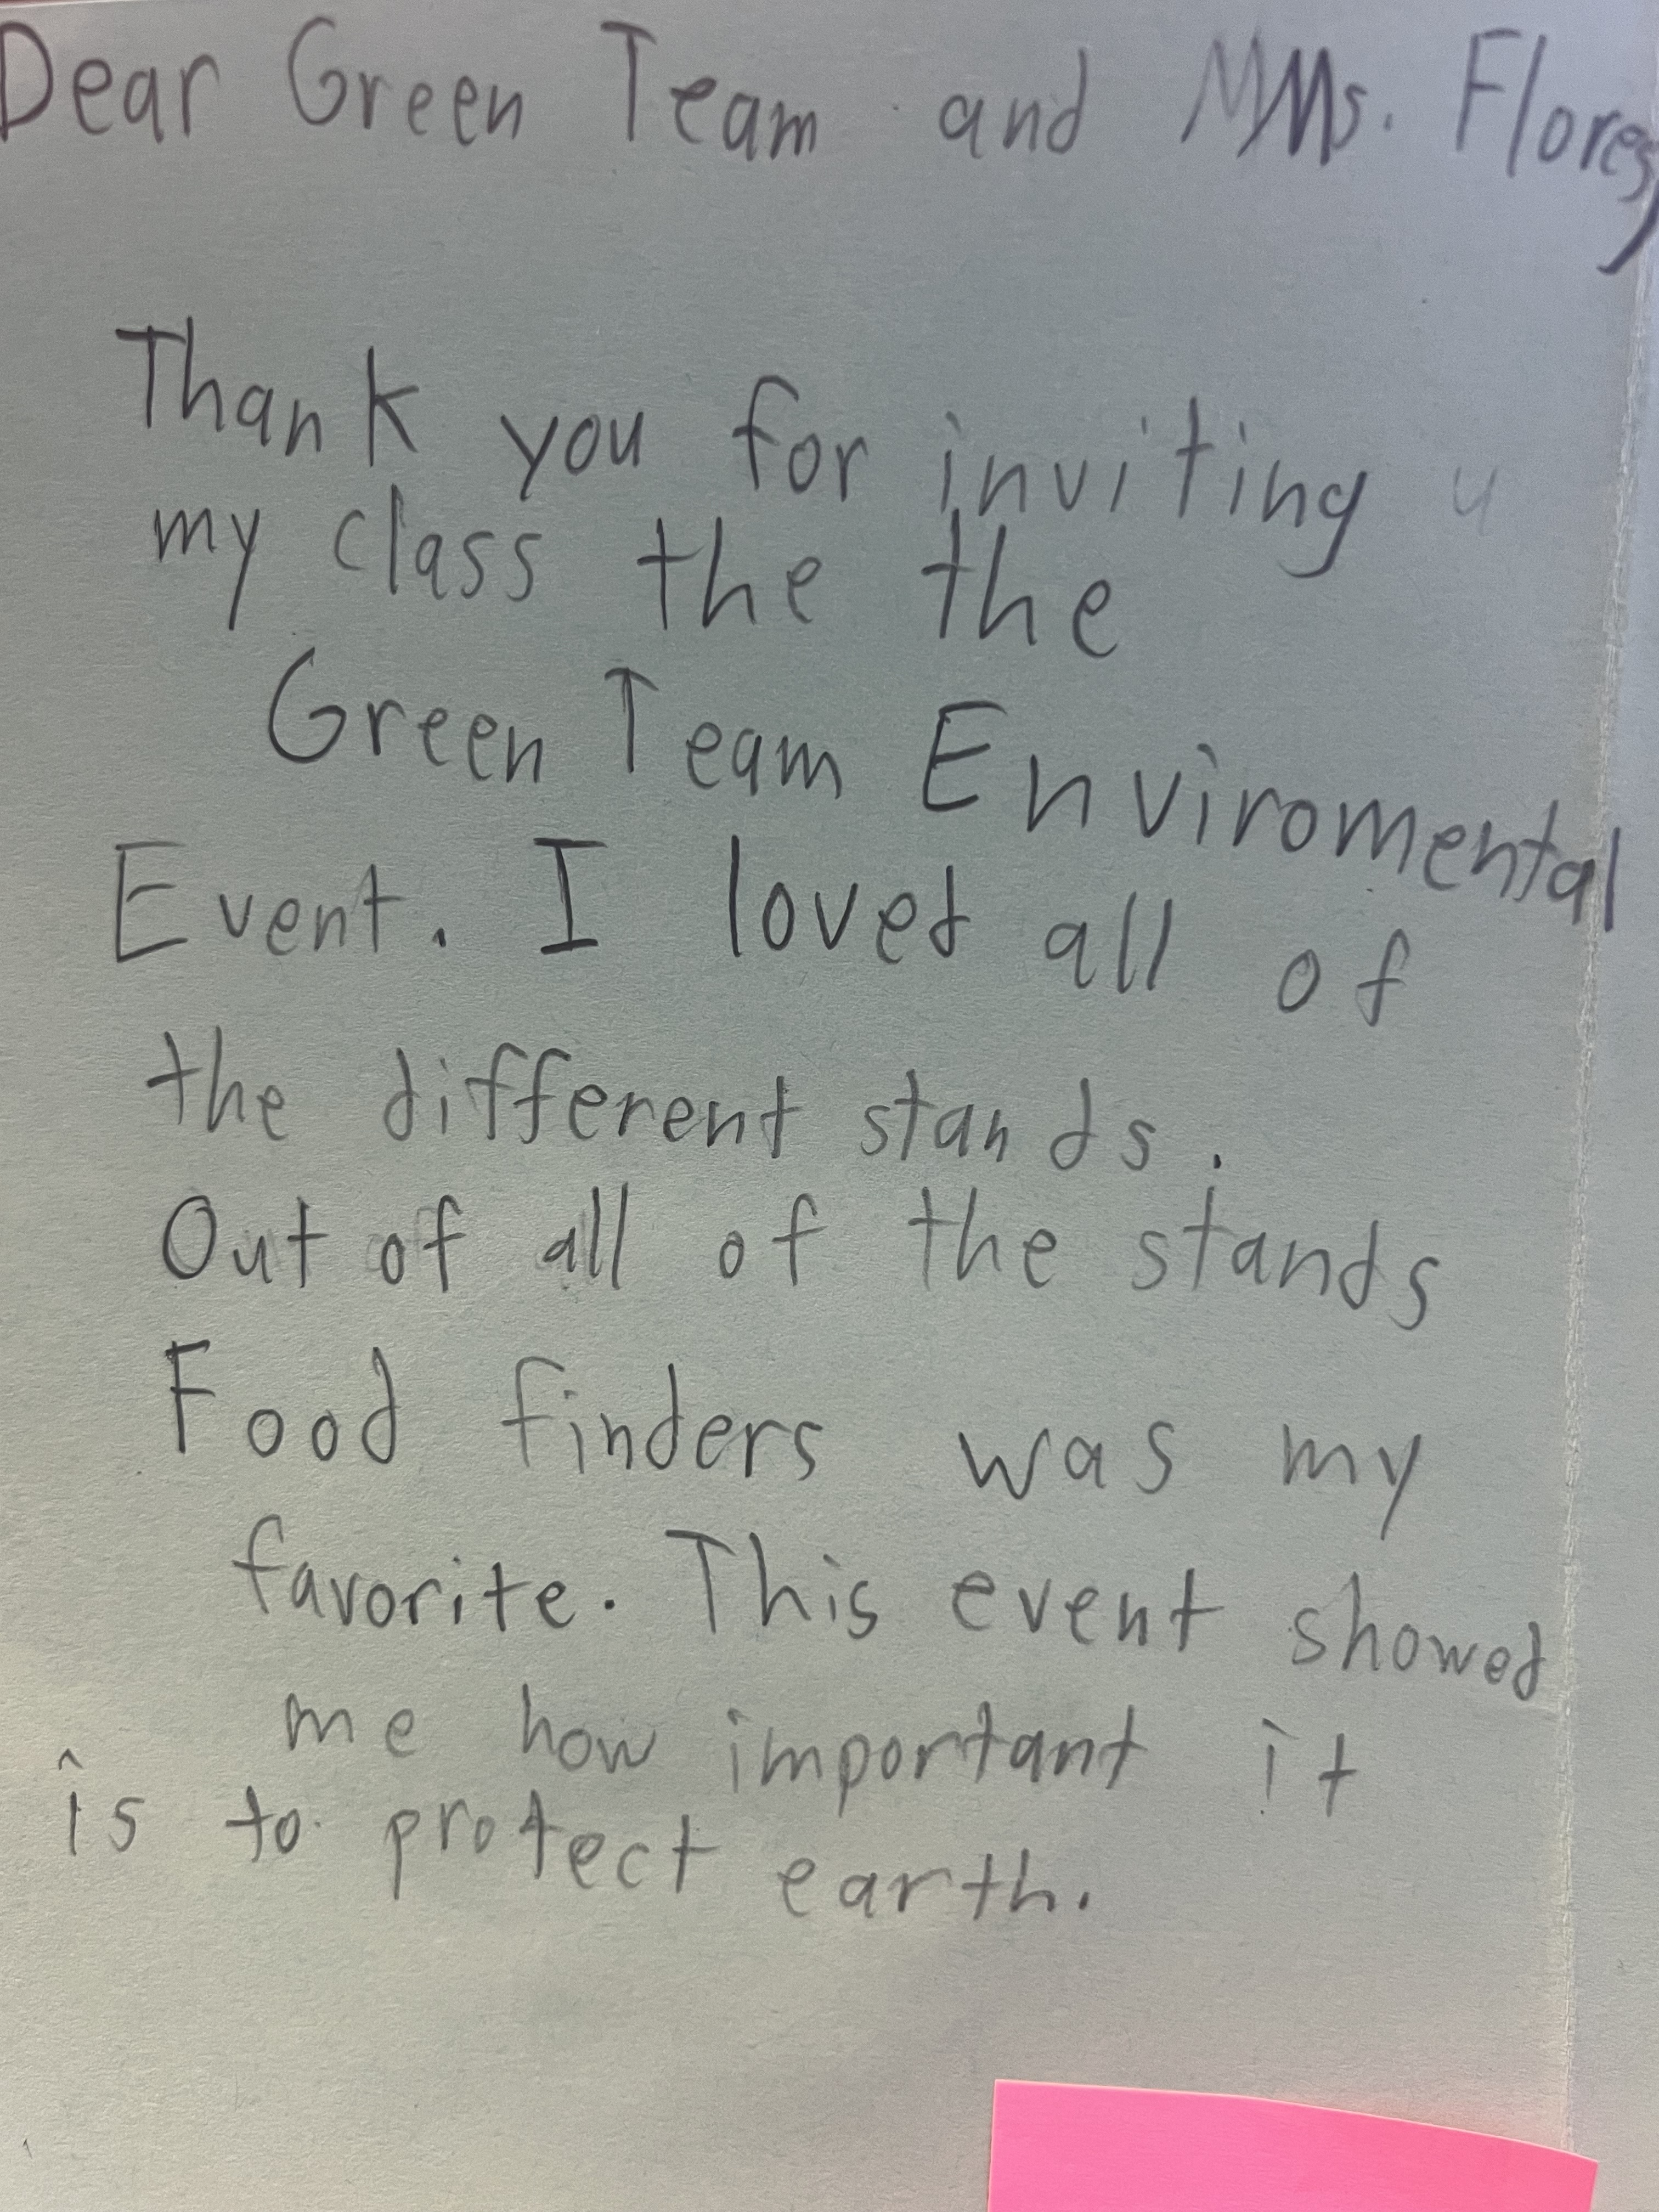 Dear Green Team and Ms. Flores,
Thank you for inviting
my class the the
Green Team Enviromental
Event. I loved all of
the different stands.
Out of all of the stands
Food finders was my
favorite. This event showed
me how important it
is to protect earth.